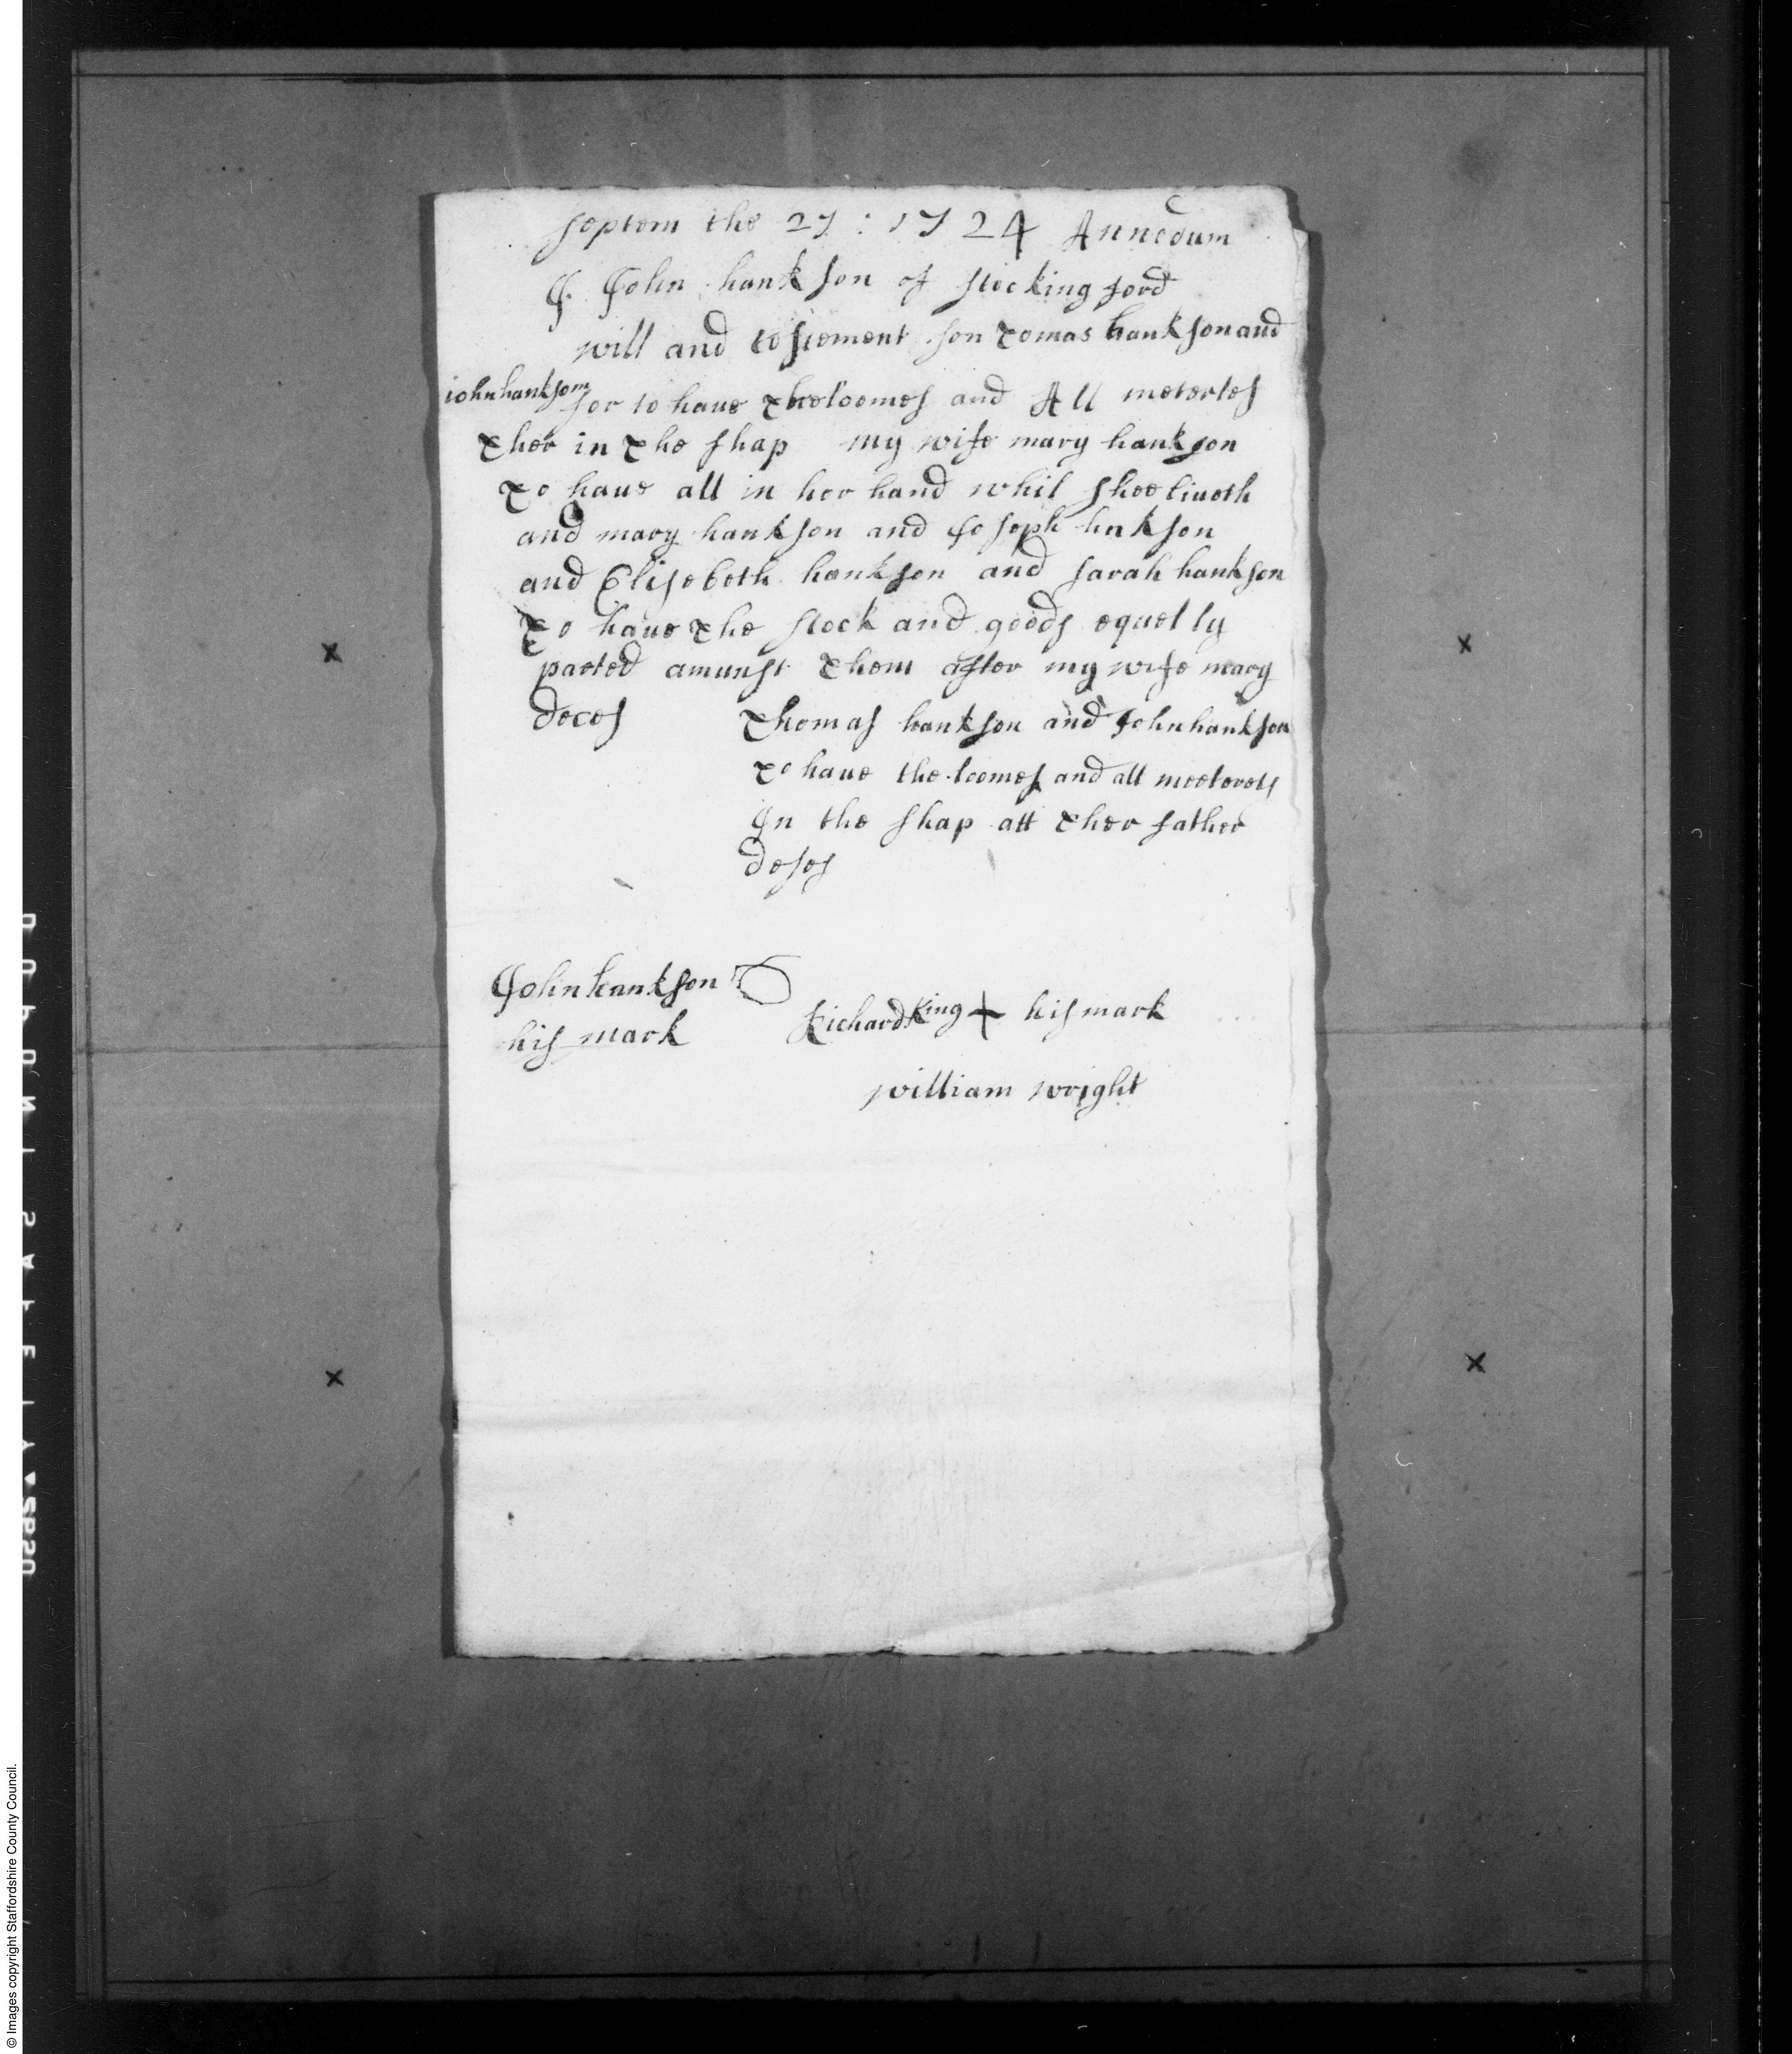 septem the 27 : 1724 Annodum
I John hankson of stockingford
will and testement son tomas hankson and
iohn hankson for to have theloomes and All meterles
ther in the shap my wife mary hankson
to haue all in her hand whil shee liueth
and mary hankson and Joseph hnkson
and Elisebeth hankson and sarah hankson
to haue the stock and goods equelly
parted amunst them after my wife mary
deces thomas hankson and John hankson
to haue the loomes and all
In the shap att ther father
deses
John hankson
his mark
Richard King his mark
william wright
© Images copyright Staffordshire County Council.